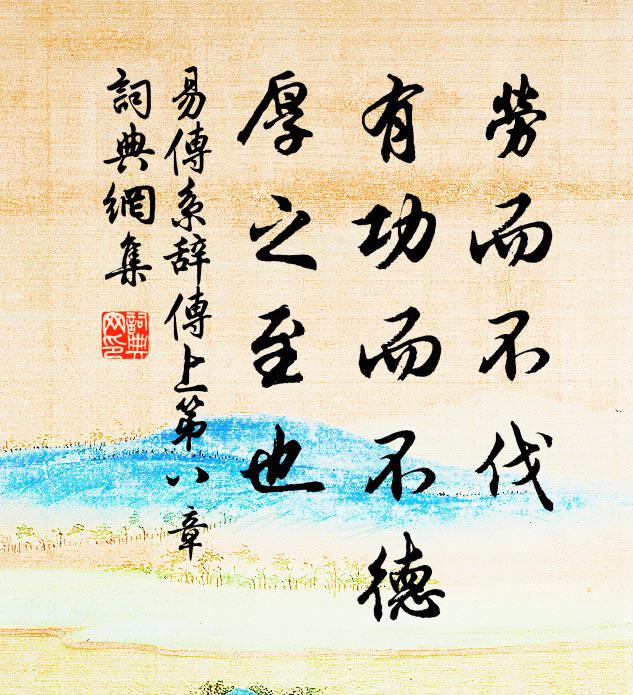 勞而不伐
有功而不德
厚之至也
易傳系辞傳上第八章
詞典網集
詞典網印